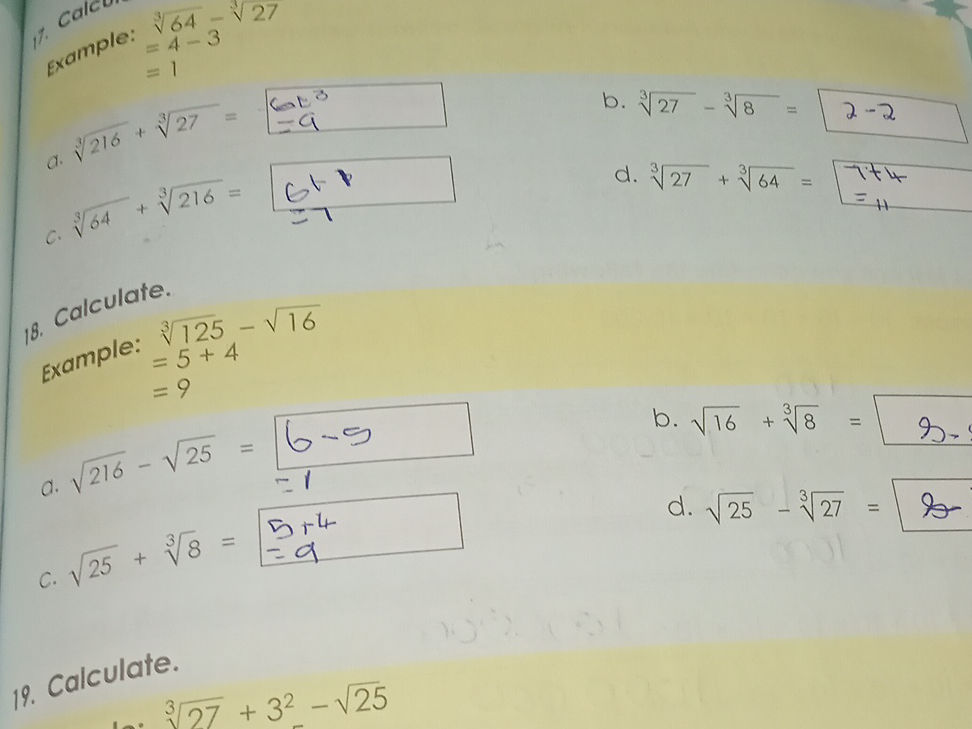 17. Calcul
Example: ∛64 − ∛27
= 4 − 3
= 1
a. ∛216 + ∛27 = 6+3
= 9
b. ∛27 − ∛8 = 2-2
c. ∛64 + ∛216 = 6+1
= 7
d. ∛27 + ∛64 = 7+4
= 11
18. Calculate.
Example: ∛125 − √16
= 5 + 4
= 9
a. √216 − √25 = 6-5
= 1
b. √16 + ∛8 =
c. √25 + ∛8 = 5+4
= 9
d. √25 − ∛27 =
19. Calculate.
∛27 + 3² − √25